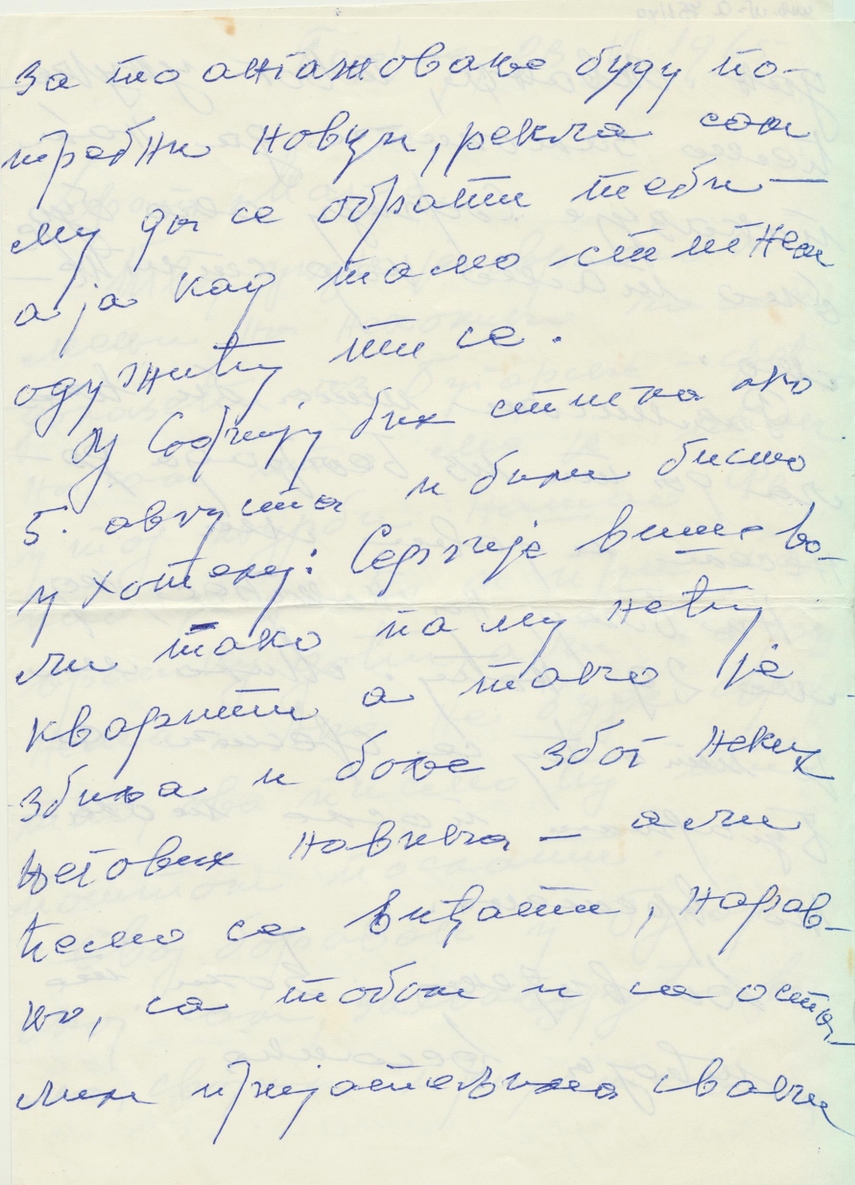 за то ангажовање буду по-
требни новци, рекла сам
му да се обрати теби —
а ја кад тамо стигнем
одужићу ти се.
Оу Софију бих стигла око
5. августа и били бисмо
у хотелу: Сергије више во-
ли тако па му нећу
кварити а тако је
збиља и боље због неких
његових навика — али
ћемо се виђати, нарав-
но, са тобом и са оста-
лим пријатељима сваки